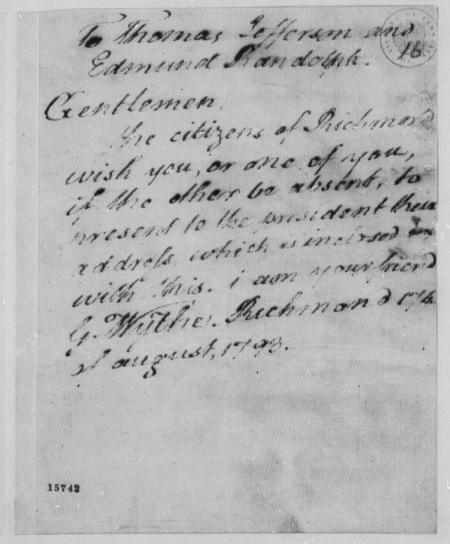 To Thomas Jefferson and
16
Edmund Randolph.
Gentlemen,
the citizens of Richmond
wish you, or one of you,
if the other be absent, to
present to the president their
address, which is inclosed
with this. i am your friend
G. Wythe. Richmond 17th
of august, 1793.
15742